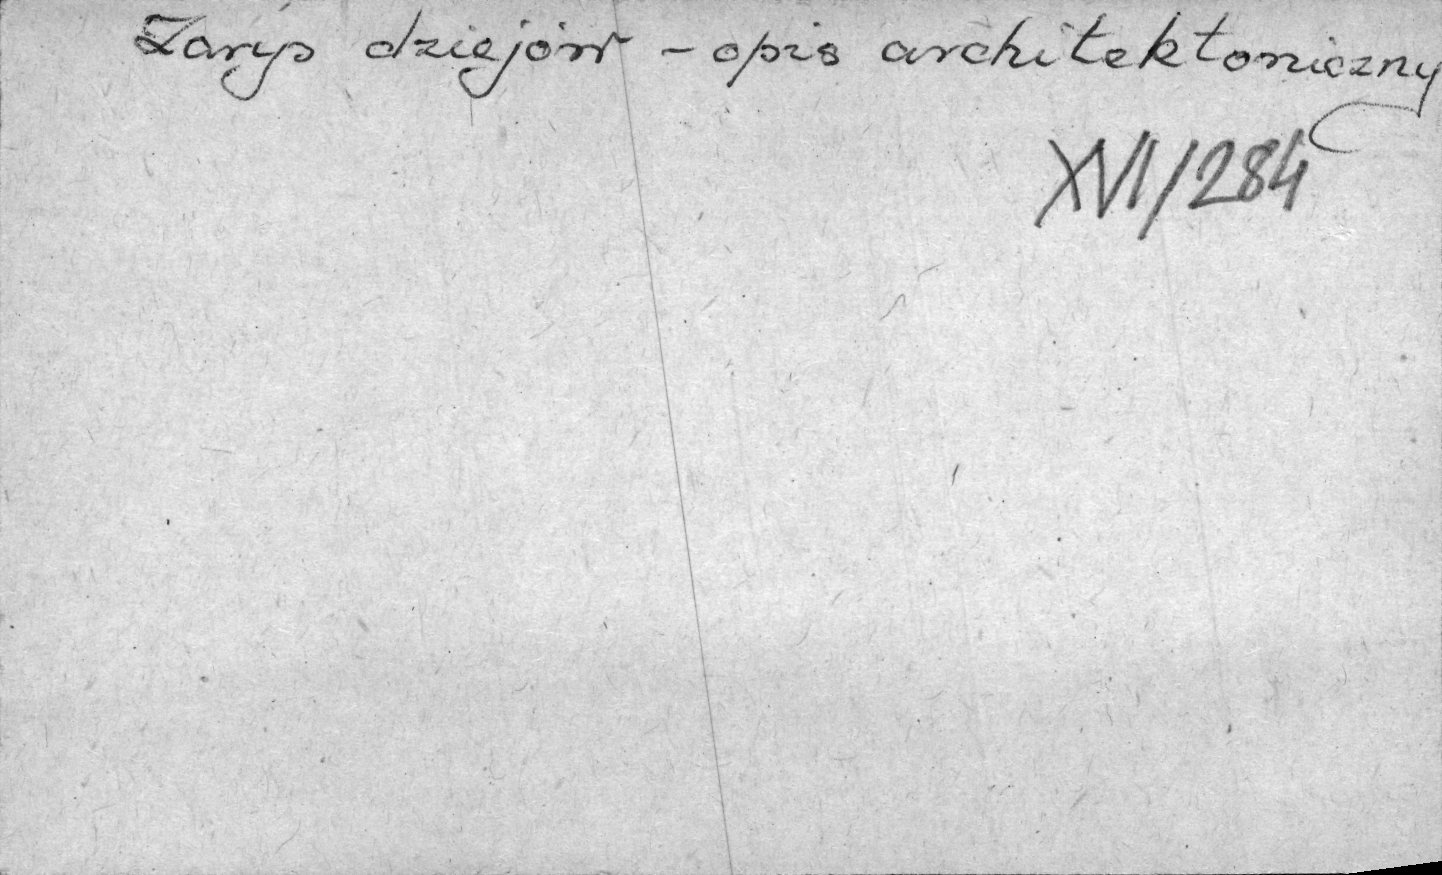 Zarys dziejów - opis architektoniczny
XVI/284